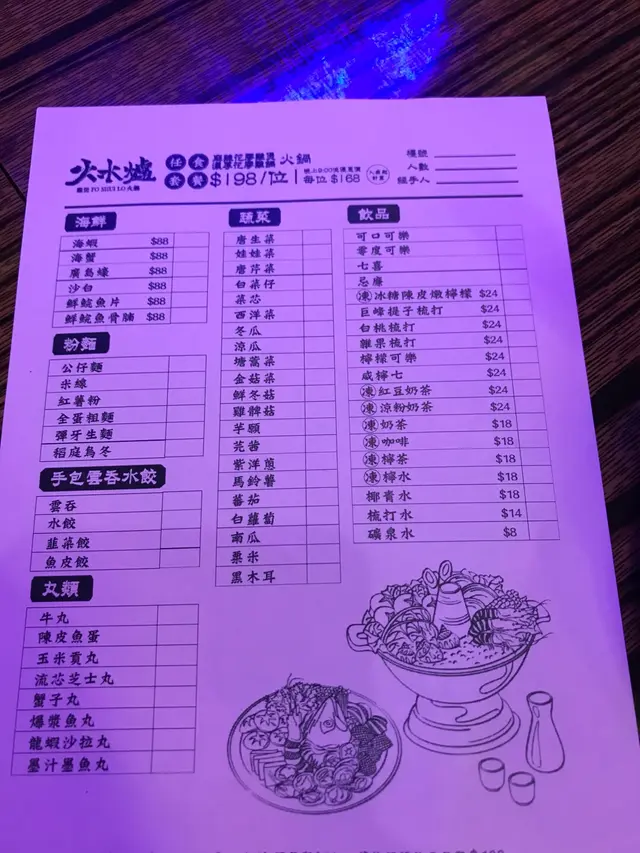 火水爐
FO SHUI LO 火鍋
任食 火鍋
套餐 $198/位 每位 $168
檯號
人數
經手人
海鮮
海蝦 $88
海蟹 $88
廣島蠔 $88
沙白 $88
鮮鯇魚片 $88
鮮鯇魚骨腩 $88
粉麵
公仔麵
米線
紅薯粉
全蛋粗麵
彈牙生麵
稻庭烏冬
手包雲吞水餃
雲吞
水餃
韮菜餃
魚皮餃
丸類
牛丸
陳皮魚蛋
玉米貢丸
流芯芝士丸
蟹子丸
爆漿魚丸
龍蝦沙拉丸
墨汁墨魚丸
蔬菜
唐生菜
娃娃菜
唐芹菜
白菜仔
菜芯
西洋菜
冬瓜
涼瓜
塘蒿菜
金菇菜
鮮冬菇
雞髀菇
芋頭
芫茜
紫洋蔥
馬鈴薯
蕃茄
白蘿蔔
南瓜
粟米
黑木耳
飲品
可口可樂
零度可樂
七喜
忌廉
凍冰糖陳皮燉檸檬 $24
巨峰提子梳打 $24
白桃梳打 $24
雜果梳打 $24
檸檬可樂 $24
咸檸七 $24
凍紅豆奶茶 $24
凍涼粉奶茶 $24
凍奶茶 $18
凍咖啡 $18
凍檸茶 $18
凍檸水 $18
椰青水 $18
梳打水 $14
礦泉水 $8